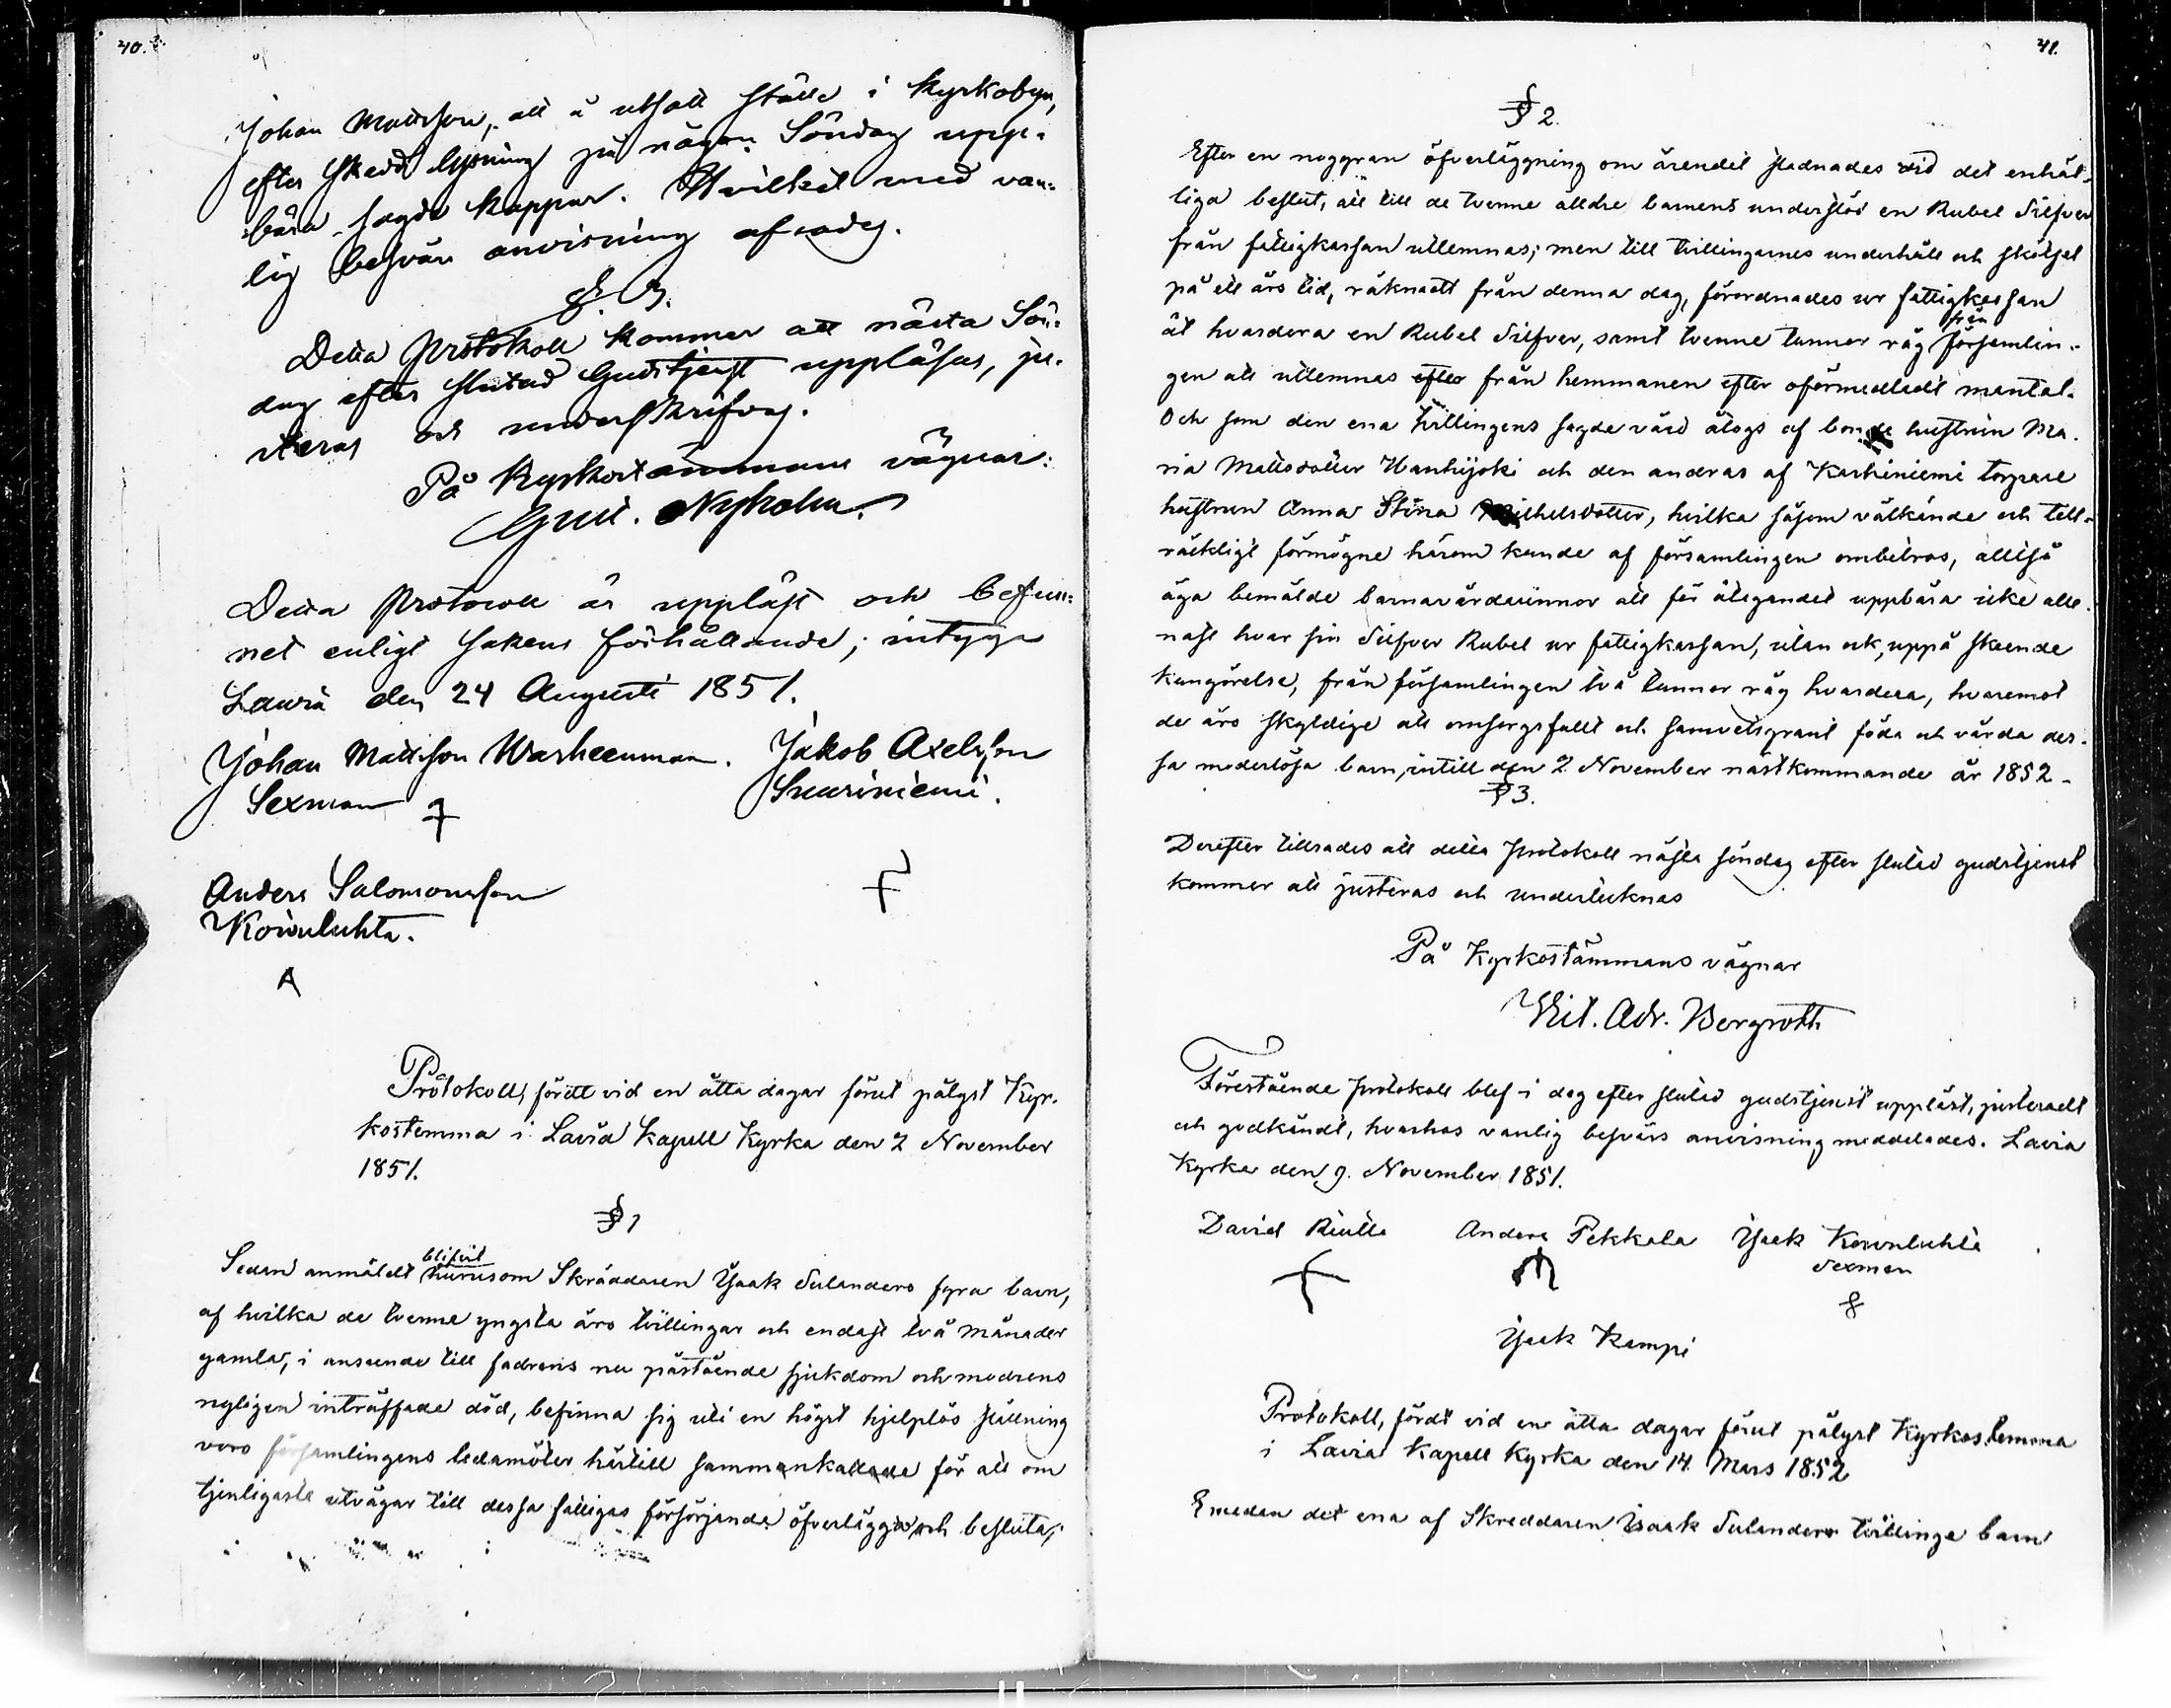 40.
Johan Mattsson, att å utsatt ställe i Kyrkobyn,
efter skedd lysning på någon Söndag upp-
bära sagde kappar. Hvilket med van-
lig besvärs anvisning afsades.
§. 3.
Detta Protokoll kommer att nästa Sön-
dag efter slutad Gudstjenst uppläsas, ju-
steras och underskrifvas.
På Kyrkostämmans vägnar:
Gust. Nyholm.
Detta Protocoll är uppläst och befun-
net enligt sakens förhållande; intyga
Lavia den 24 Augusti 1851.
Johan Mattsson Warheenmaa. Jakob Axelsson
Sexman Suuriniemi.
Anders Salomonsson
Koivuluhta.
A
Protokoll, fördt vid en åtta dagar förut pålyst Kyr-
kostemma i Lavia Kapell Kyrka den 2 November
1851.
§ 1
blifvit
Sedan anmäldt hurusom Skräddaren Isaak Sulanders fyra barn,
af hvilka de tvenne yngsta äro tvillingar och endast två månader
gamla, i anseende till fadrens nu påstående sjukdom och modrens
nyligen inträffade död, befinna sig uti en högst hjelplös ställning
voro församlingens ledamöter härtill sammankallade för att om
tjenligaste utvägar till dessa fattigas försörjande öfverlägga och besluta;
41.
§ 2.
Efter en noggran öfverläggning om ärendet stadnades vid det enhäl-
liga beslut, att till de tvenne äldre barnens understöd en Rubel Silfver
från fattigkassan utlemnas; men till tvillingarnes underhåll och skötsel
på ett års tid, räknadt från denna dag, förordnades ur fattigkassan
från
åt hvardera en Rubel Silfver, samt tvenne tunnor råg församlin-
gen att utlemnas efter från hemmanen efter oförmedladt mantal.
Och som den ena tvillingens sagde vård åtogs af bonde hustrun Ma-
ria Mattsdotter Hanhijoki och den andras af Karhiniemi torpare
hustrun Anna Stina Wilhelsdotter, hvilka såsom välkände och till-
räckligt förmögne härom kunde af församlingen ombetros, alltså
äga bemälde barnavårdarinnor att för åtagandet uppbära icke alle-
nast hvar sin Silfver Rubel ur fattigkassan, utan ock, uppå skeende
kungörelse, från församlingen två tunnor råg hvardera, hvaremot
de äro skyldige att omsorgsfullt och samvetsgrant föda och vårda des-
sa moderlösa barn, intill den 2 November nästkommande år 1852 -
§ 3.
Derefter tillsades att detta protokoll nästa söndag efter slutad gudstjenst
kommer att justeras och undertecknas
På Kyrkostämmans vägnar
Vilh. Adr. Bergroth
Förestående protokoll blef i dag efter slutad gudstjenst uppläst, justeradt
och godkändt, hvarhos vanlig besvärs anvisning meddelades. Lavia
Kyrka den 9. November 1851.
David Riutta Anders Pekkala Isak Kowuluhta
Sexman
Isak Kampi
Protokoll, fördt vid en åtta dagar förut pålyst Kyrkostemma
i Lavia Kapell Kyrka den 14 Mars 1852
Emedan det ena af Skreddaren Isaak Sulanders tvillinge barn